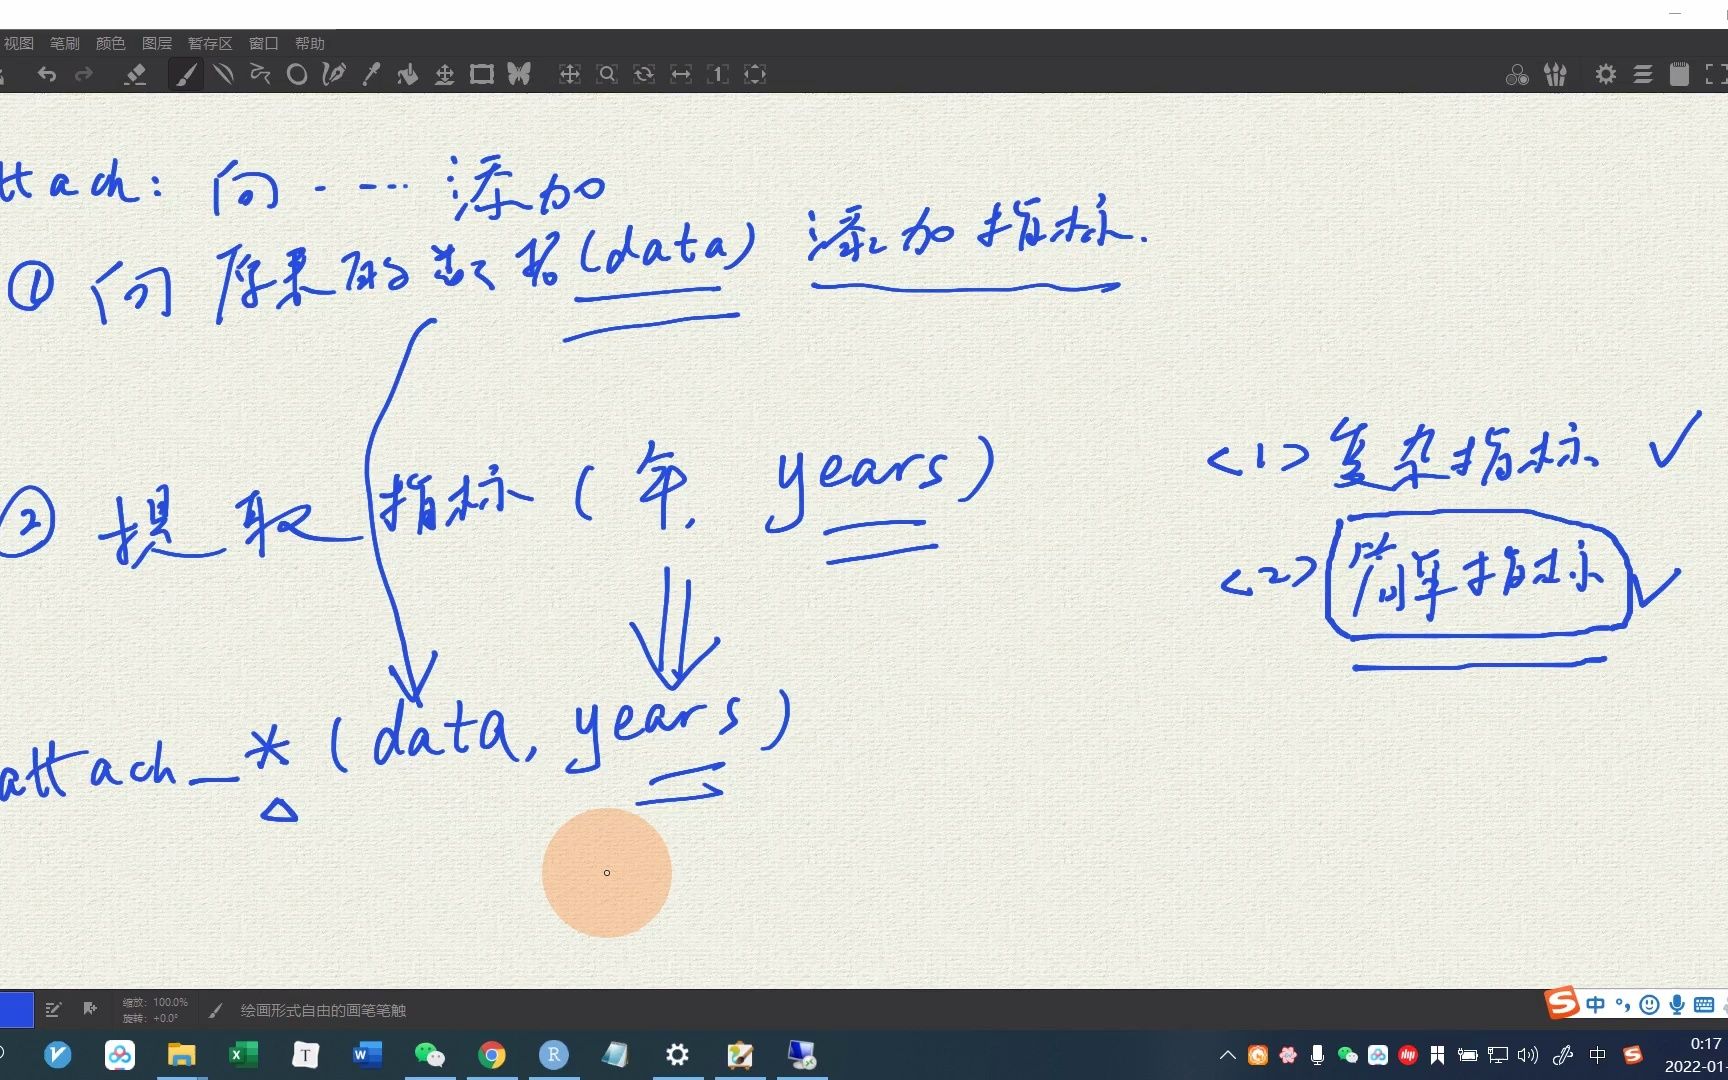 视图 笔刷 颜色 图层 暂存区 窗口 帮助
ttach: 向 ······ 添加
① 向原来的数据(data) 添加指标.
② 提取 指标 ( 年, years )
<1> 复杂指标 ✓
<2> 简单指标 ✓
attach_* (data, years )
缩放: 100.0%
旋转: +0.0°
绘画形式自由的画笔笔触
中
0:17
2022-01-